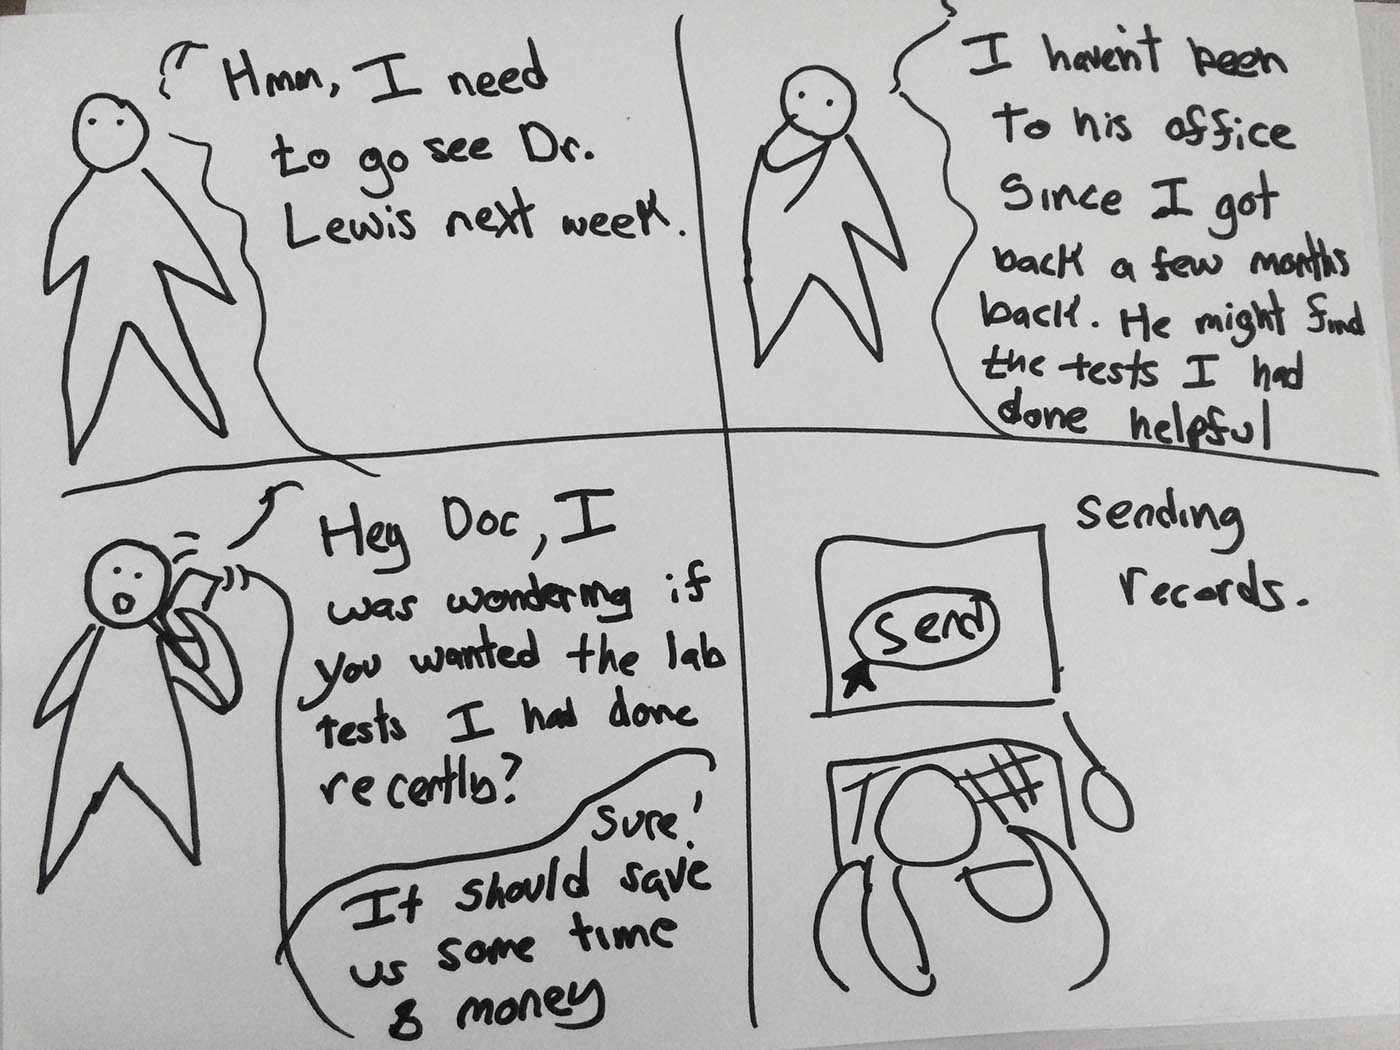 Hmm, I need
to go see Dr.
Lewis next week.
I haven't been
to his office
Since I got
back a few months
back. He might find
the tests I had
done helpful
Hey Doc, I
was wondering if
you wanted the lab
tests I had done
recently?
Sure!
It should save
us some time
& money
Sending
records.
Send